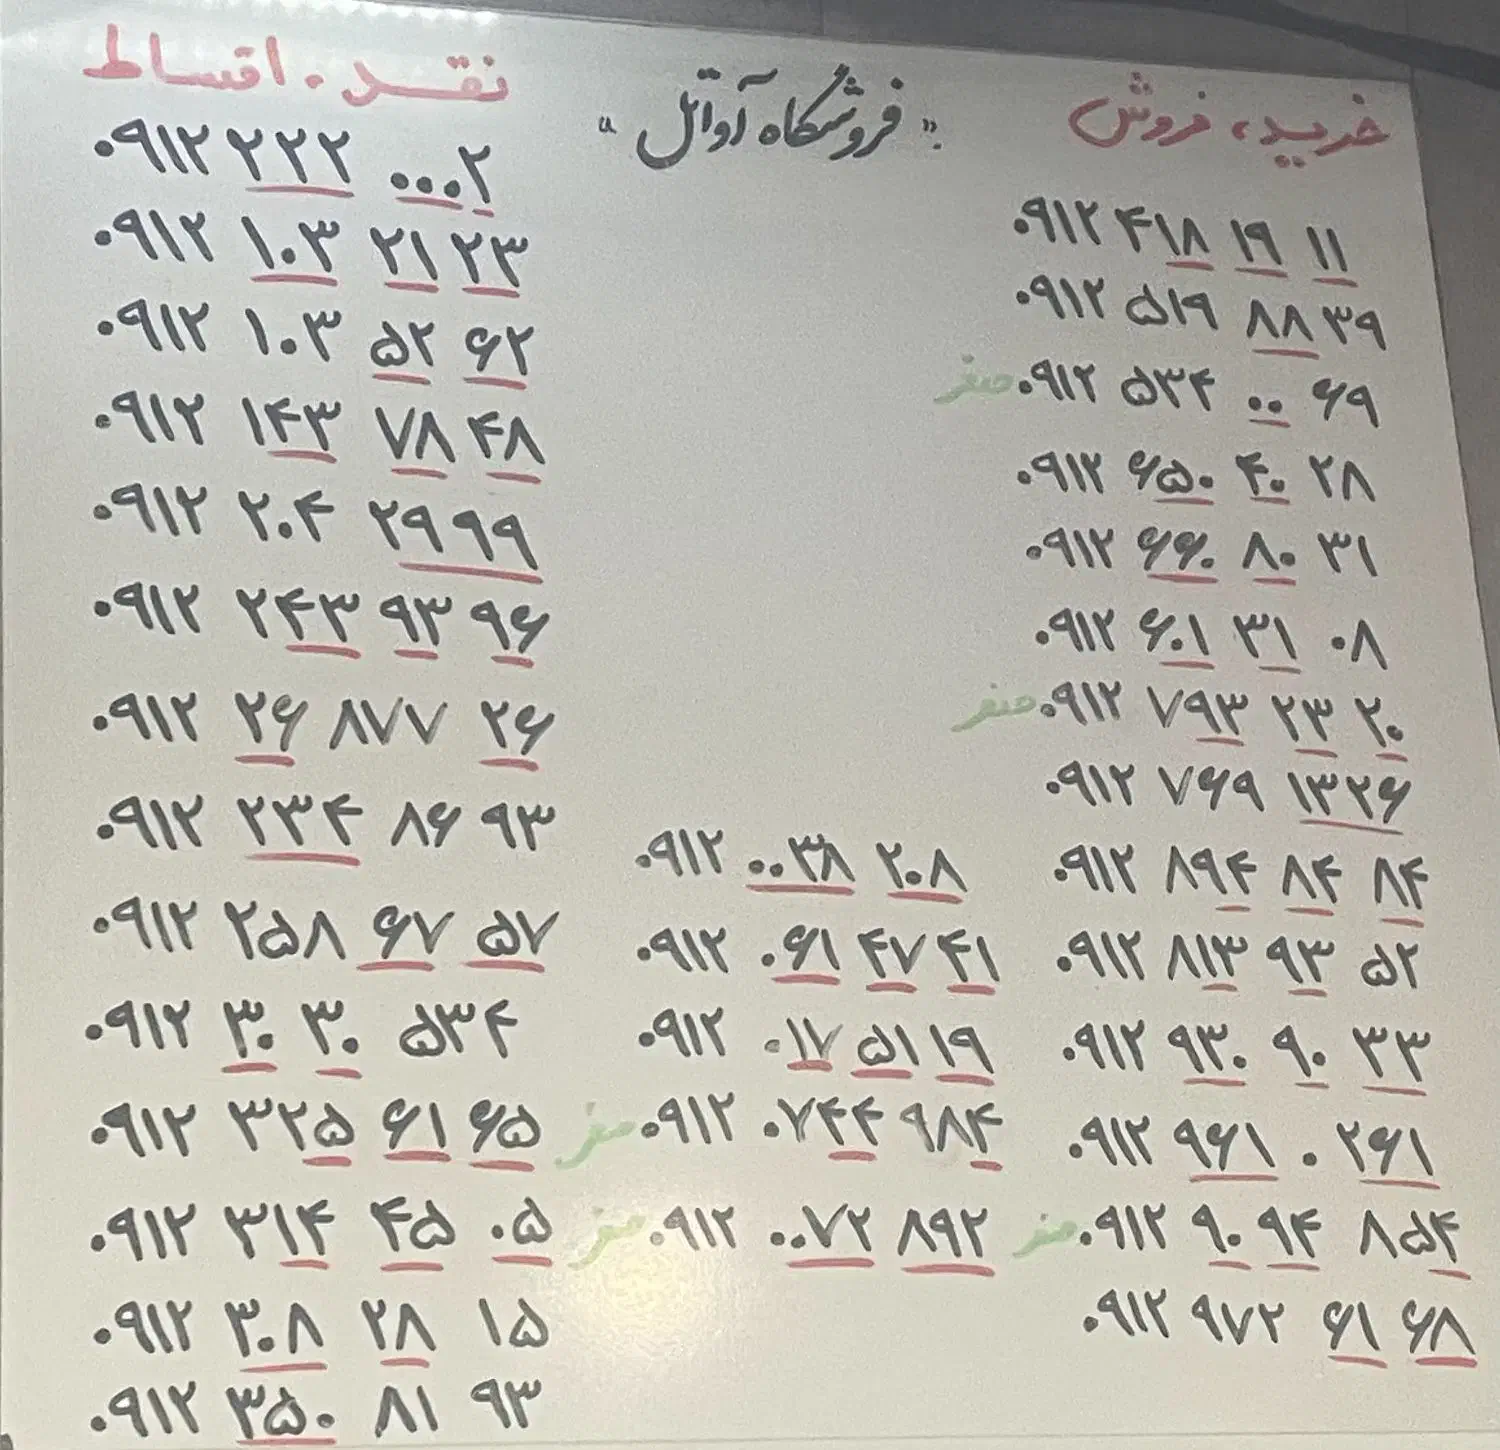 خرید، فروش
«فروشگاه آوال»
نقد . اقساط
۰۹۱۲ ۲۲۲ ۰۰۰۲
۰۹۱۲ ۱۰۳ ۲۱ ۲۳
۰۹۱۲ ۱۰۳ ۵۲ ۶۲
۰۹۱۲ ۱۴۳ ۷۸ ۴۸
۰۹۱۲ ۲۰۴ ۲۹ ۹۹
۰۹۱۲ ۲۴۳ ۹۳ ۹۶
۰۹۱۲ ۲۶ ۸۷۷ ۲۶
۰۹۱۲ ۲۳۴ ۸۶ ۹۳
۰۹۱۲ ۲۵۸ ۶۷ ۵۷
۰۹۱۲ ۳۰ ۳۰ ۵۳۴
۰۹۱۲ ۳۲۵ ۶۱ ۶۵
۰۹۱۲ ۳۱۴ ۴۵ ۰۵
۰۹۱۲ ۳۰۸ ۲۸ ۱۵
۰۹۱۲ ۳۵۰ ۸۱ ۹۳
۰۹۱۲ ۰۰۳۸ ۲۰۸
۰۹۱۲ ۰۶۱ ۴۷ ۴۱
۰۹۱۲ ۰۱۷ ۵۱ ۱۹
صفر ۰۹۱۲ ۰۷۴۴ ۹۸۴
صفر ۰۹۱۲ ۰۰۷۲ ۸۹۲
۰۹۱۲ ۴۱۸ ۱۹ ۱۱
۰۹۱۲ ۵۱۹ ۸۸ ۳۹
صفر ۰۹۱۲ ۵۳۴ ۰۰ ۶۹
۰۹۱۲ ۶۵۰ ۴۰ ۲۸
۰۹۱۲ ۶۶۰ ۸۰ ۳۱
۰۹۱۲ ۶۰۱ ۳۱ ۰۸
صفر ۰۹۱۲ ۷۹۳ ۲۳ ۲۰
۰۹۱۲ ۷۶۹ ۱۳۲۶
۰۹۱۲ ۸۹۴ ۸۴ ۸۴
۰۹۱۲ ۸۱۳ ۹۳ ۵۲
۰۹۱۲ ۹۳۰ ۹۰ ۳۳
۰۹۱۲ ۹۶۱ ۰ ۲۶۱
صفر ۰۹۱۲ ۹۰ ۹۴ ۸۵۴
۰۹۱۲ ۹۷۲ ۶۱ ۶۸